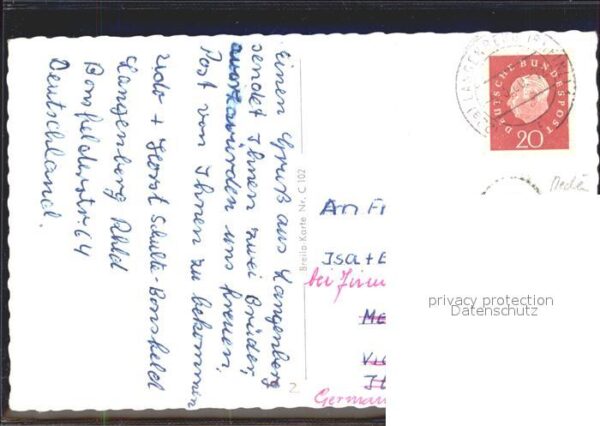 Einen Gruß aus Langenberg
sendet Ihnen zwei Brüder,
würden uns freuen,
Post von Ihnen zu bekommen
Udo + Horst Schulte-Bonsfeld
Langenberg Rhld
Bonsfelderstr. 64
Deutschland.
Breila-Karte Nr. C 102
LANGENBERG
DEUTSCHE BUNDESPOST
20
An F
Isa + E
bei Firm
Me
Vi
German
2
privacy protection
Datenschutz